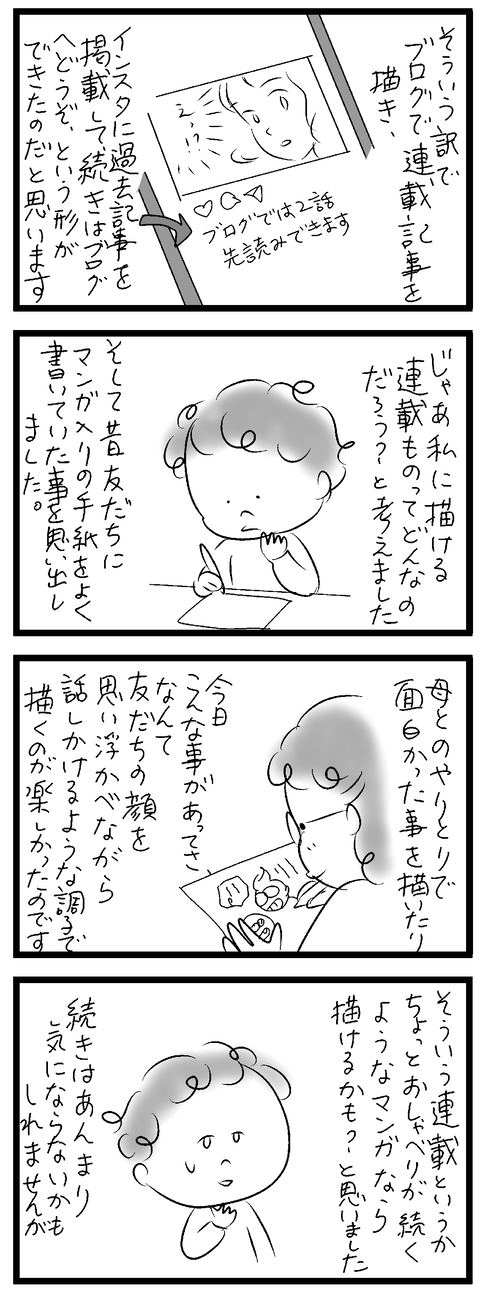 そういう訳で
ブログで、連載記事を
描き、
えっ!?
ブログでは2話
先読みできます
インスタに過去記事を
掲載して続きはブログ
へどうぞ、という形が
できたのだと思います
じゃあ私に描ける
連載ものってどんなの
だろう?と考えました
そして昔友だちに
マンガ入りの手紙をよく
書いていた事を思い出し
ました。
母とのやりとりで
面白かった事を描いたり
今日
こんな事があってさ、
なんて
友だちの顔を
思い浮かべながら
話しかけるような調子で
描くのが楽しかったのです
そういう連載というか
ちょっとおしゃべりが続く
ようなマンガなら
描けるかも?と思いました
続きはあんまり
気にならないかも
しれませんが